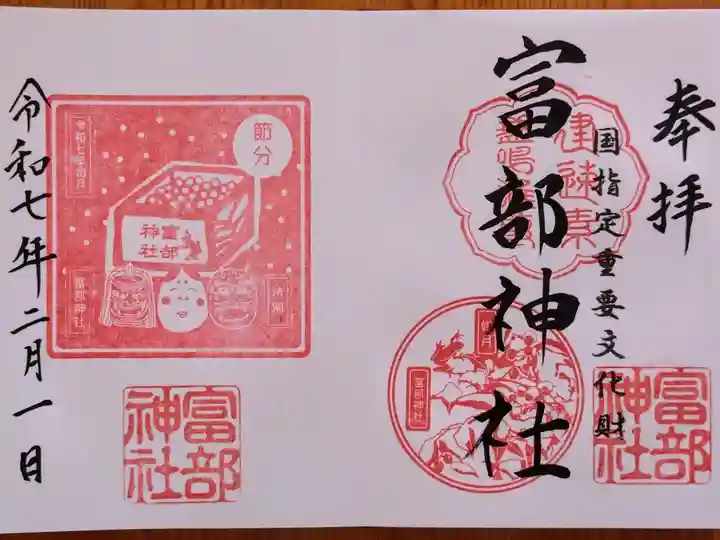 奉拝
国指定重要文化財
富部神社
建速素
盞嗚尊
如月
富部神社
富部神社
節分
令和七年二月
富部神社
富部神社
特別
富部神社
令和七年二月一日